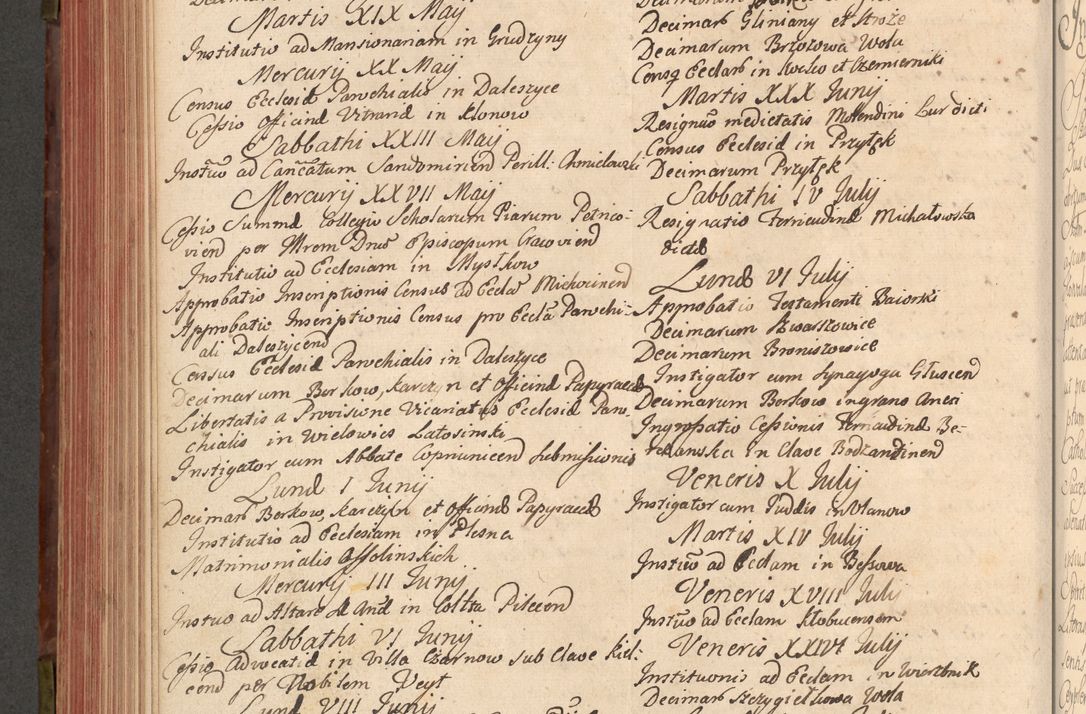 Martis XIX Maij
Institutio ad Mansionariam in Grudzyny
Mercurij XX Maij
Census Ecclesiæ Parochialis in Daleszyce
Cessio officinæ Vitrariæ in Klonow
Sabbathi XXIII Maij
Instuo ad Cancātum Sandomirien Perill: Chmielowski
Mercurij XXVII Maij
Cessio Summæ Collegio Scholarum Piarum Petrico-
vien per Illrem Dnum Episcopum Cracovien
Institutio ad Ecclesiam in Mysłkow
Approbatio Inscriptionis Census ad Eccla Miechovien
Approbatio Inscriptionis Census pro Eccla Parochi-
ali Daleszycen
Census Ecclesiæ Parochialis in Daleszyce
Decimarum Borkow, Karczyn et officinæ Papyraceæ
Libertatis a Provisione Vicariatus Ecclesiæ Paro-
chialis in Wielowies Łatosinski
Instigator cum Abbate Coprunicen Submissionis
Lunæ I Junij
Decimar Borkow, Karczyn et officinæ Papyraceæ
Institutio ad Ecclesiam in Plesna
Matrimonialis Ossolinskich
Mercurij III Junij
Instuo ad Altare in Pilecen
Sabbathi VI Junij
Cessio Advocatiæ in Villa Czarnow sub Clave Kiel:
cen per Nobilem Veyt
Lunæ VIII Junij
Decimar Gliniany et Stroże
Decimarum Brzozowa Wola
Census Ecclar in et Czemierniki
Martis XXX Junij
Resignatio medietatis Mollendini Lur dicti
Census Ecclesiæ in Przyłęk
Decimarum Przyłęk
Sabbathi IV Julij
Resignatio Terricudinæ Michałowska
dictæ
Lunæ VI Julij
Approbatio Testamenti Baiorski
Decimarum Kwaszowice
Decimarum Broniszowice
Instigator cum Synagoga Głuscen
Decimarum Borkow in grano
Ingrossatio Cessionis Terricudinæ Be-
in Clave Bodzantinen
Veneris X Julij
Instigator cum Judæis in Ulanow
Martis XIV Julij
Instuo ad Eclam in Bessowa
Veneris XVIII Julij
Instuo ad Eclam Kłobucensem
Veneris XXIV Julij
Institutionis ad Eclam in Wierzbnik
Decimar Szczygiełkowa Wola